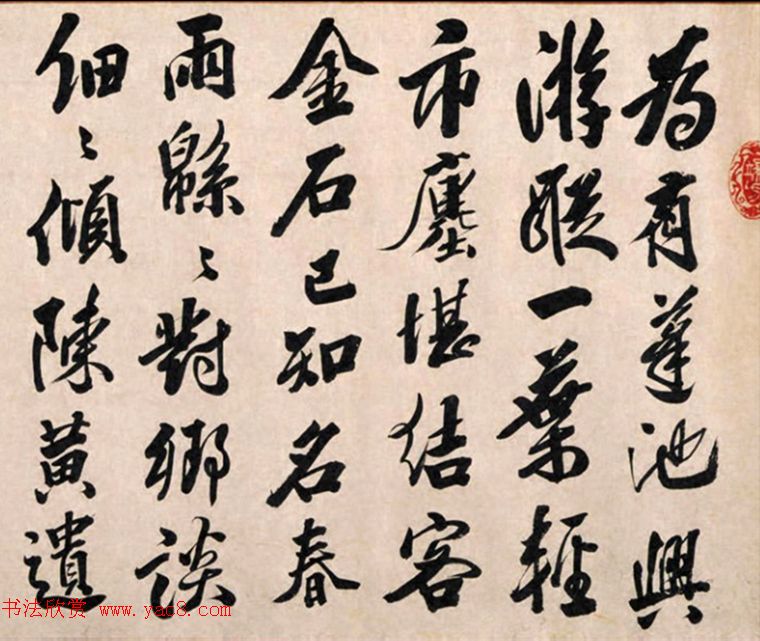 為有蓬池興
游蹤一葉輕
市塵堪結客
金石已知名春
雨緜〻對鄉談
細〻傾陳黄遺
书法欣赏 www.yac8.com